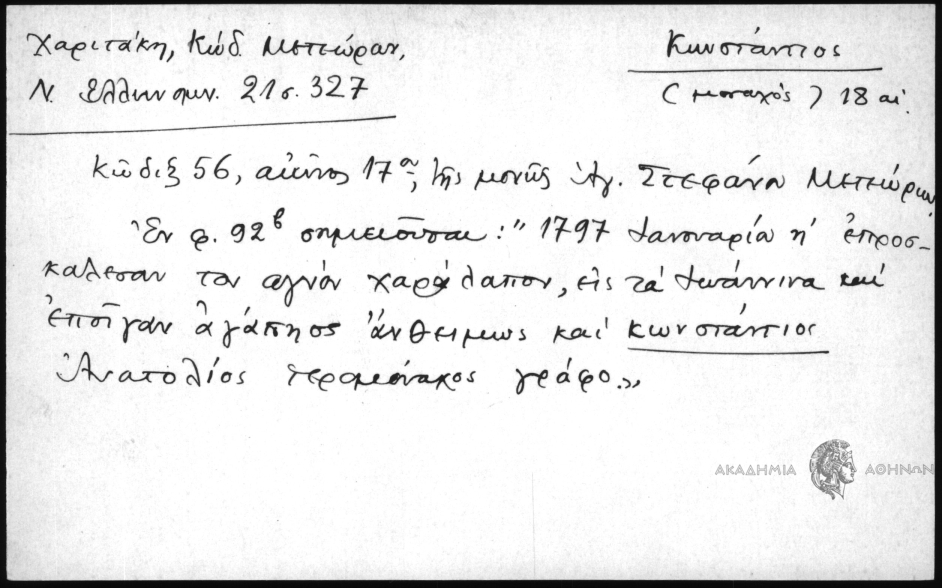 Χαριτάκη, Κώδ. Μετεώρων,
Ν. Ελληνομν. 21 σ. 327
Κωνστάντιος
(μοναχός) 18 αἰ.
Κῶδιξ 56, αἰῶνος 17ου, τῆς μονῆς Ἁγ. Στεφάνου Μετεώρων
Ἐν φ. 92β σημειοῦται: "1797 Ιανουαρία η' ἐπροσ-
καλεσαν τον αγιόν χαράλαπον, εἰς τά Ιωάννινα καί
ἐποῖγαν ὁ αγάπηος ἄνθειμως καί κωνστάντιος
Ἀνατολίος ιερομόναχος γράφο.,,
ΑΚΑΔΗΜΙΑ ΑΘΗΝΩΝ